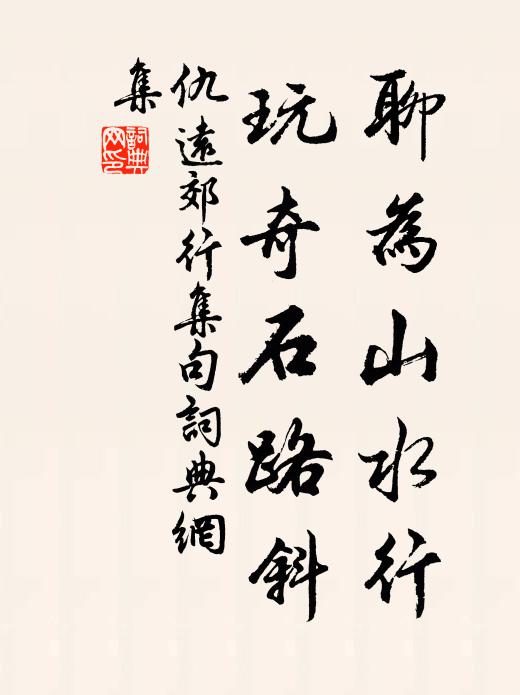 聊為山水行
玩奇石路斜
仇遠郊行集句詞典網
集
詞典網印